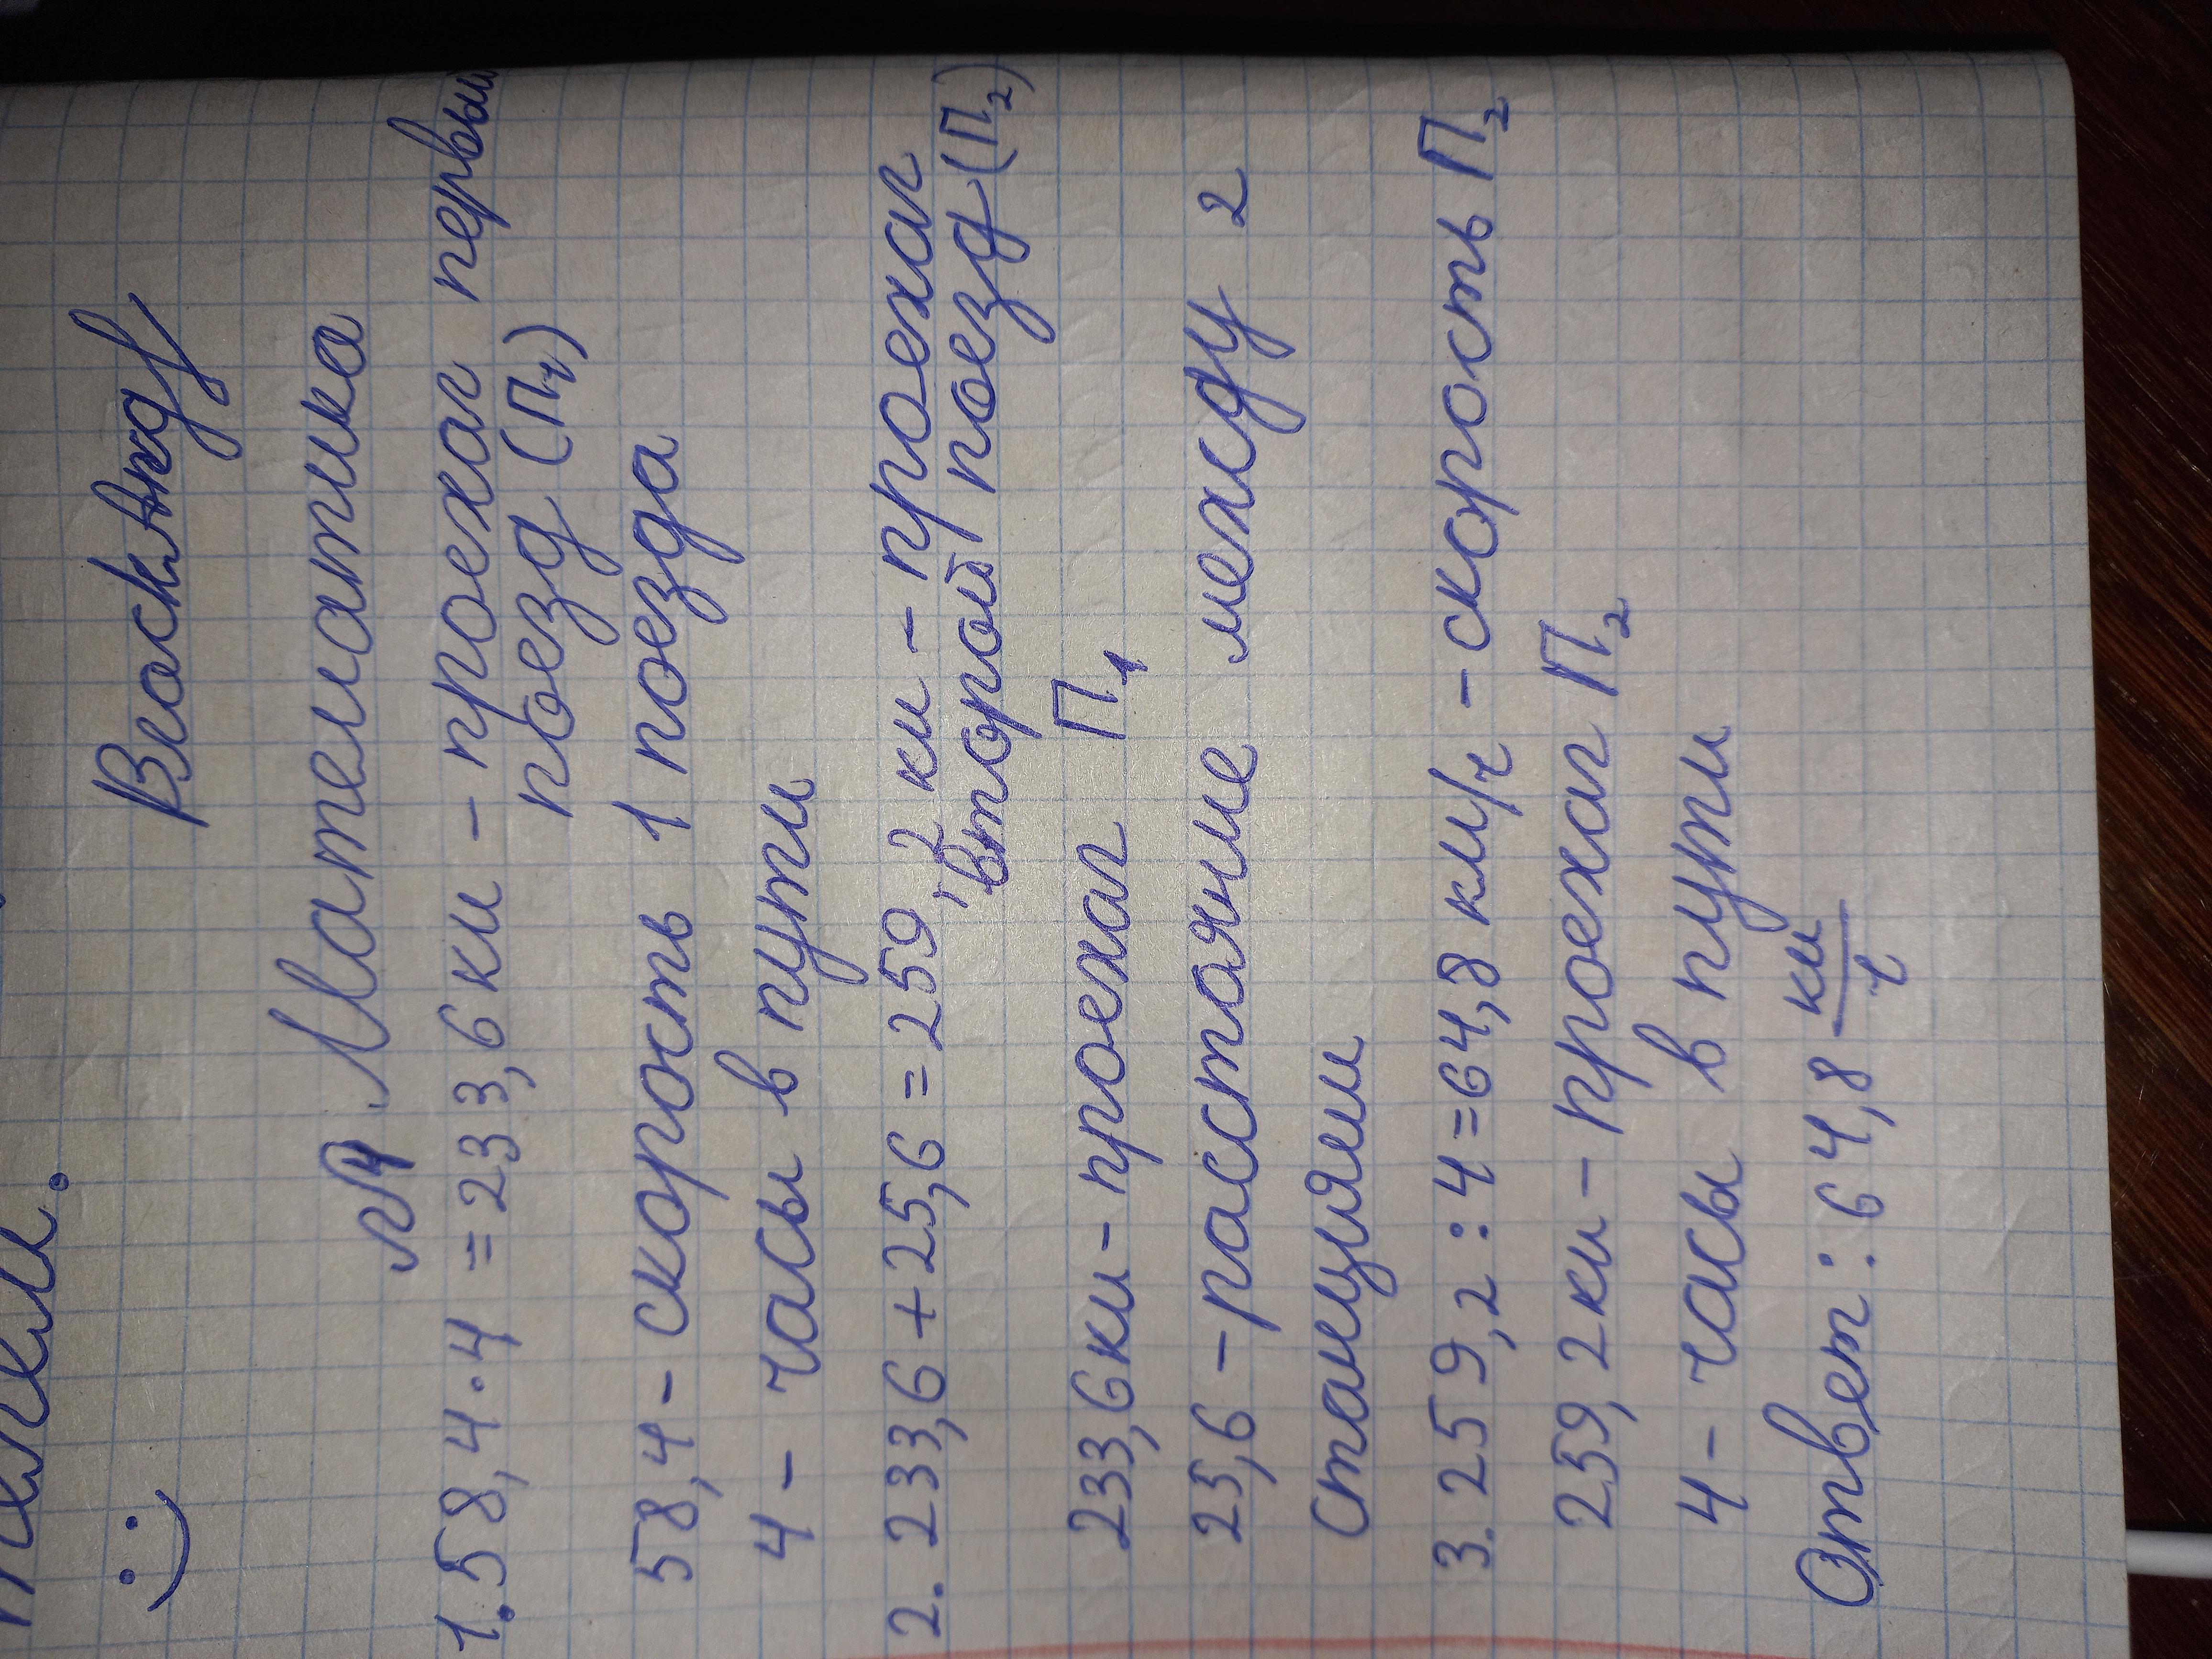 :)
Математика
№4
1. 58,4·4=233,6 км - проехал первый
поезд (П₁)
58,4 - скорость 1 поезда
4 - часы в пути
2. 233,6+25,6=259,2 км - проехал
второй поезд (П₂)
233,6 км - проехал П₁
25,6 - расстояние между 2
станциями
3. 259,2:4=64,8 км/ч - скорость П₂
259,2 км - проехал П₂
4 - часы в пути
Ответ: 64,8 км/ч